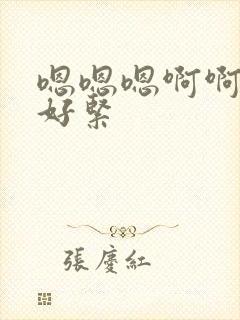 嗯嗯嗯啊啊
好緊
張慶紅